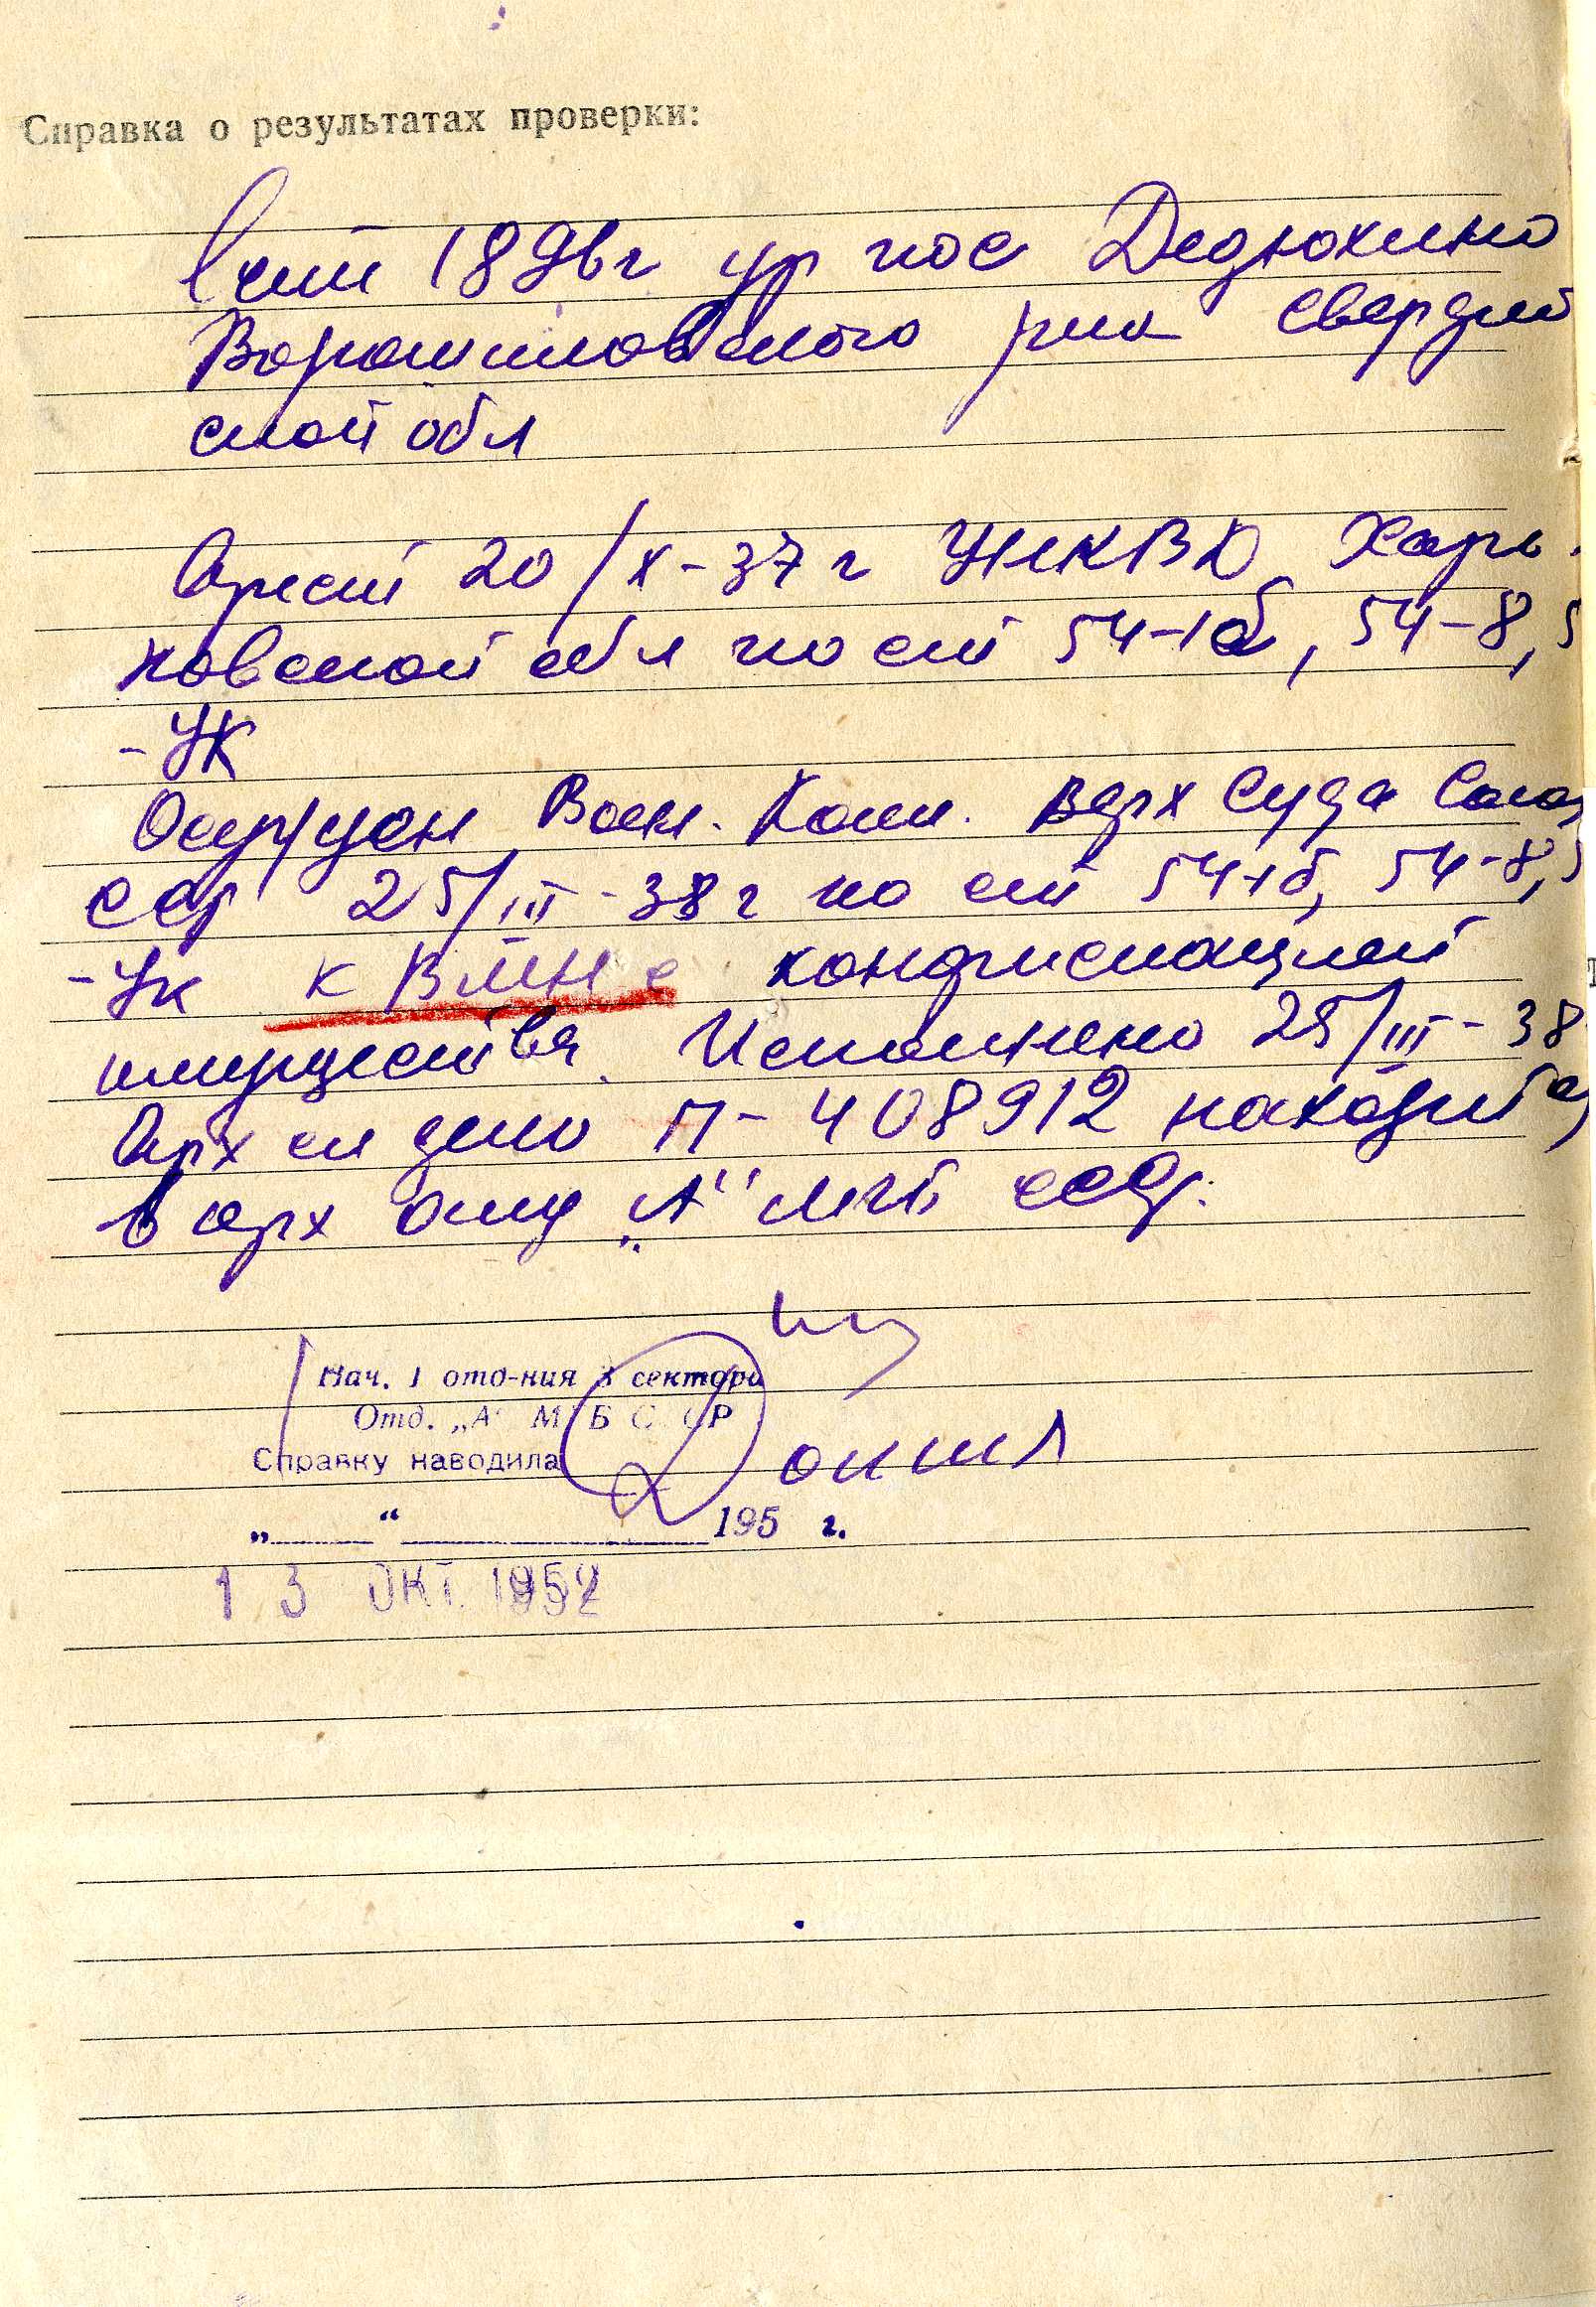 Справка о результатах проверки:
1896 г ур пос Дедюхино
Ворошиловского р-на Свердлов
ской обл
Арест 20/X-37 г УНКВД Харь-
ковской обл по ст 54-1б, 54-8, 5
- УК
Осужден Воен. Колл. Верх Суда Союза
ССР 25/III-38 г по ст 54-1б, 54-8, 5
- УК к ВМН с конфискацией
имущества. Исполнено 25/III-38
Арх сл дело П-408912 находится
в арх отд „А" МГБ СССР.
Нач. 1 отд-ния 3 сектора
Отд. „А" МГБ СССР
Справку наводила
„ “ 195 г.
13 ОКТ. 1952